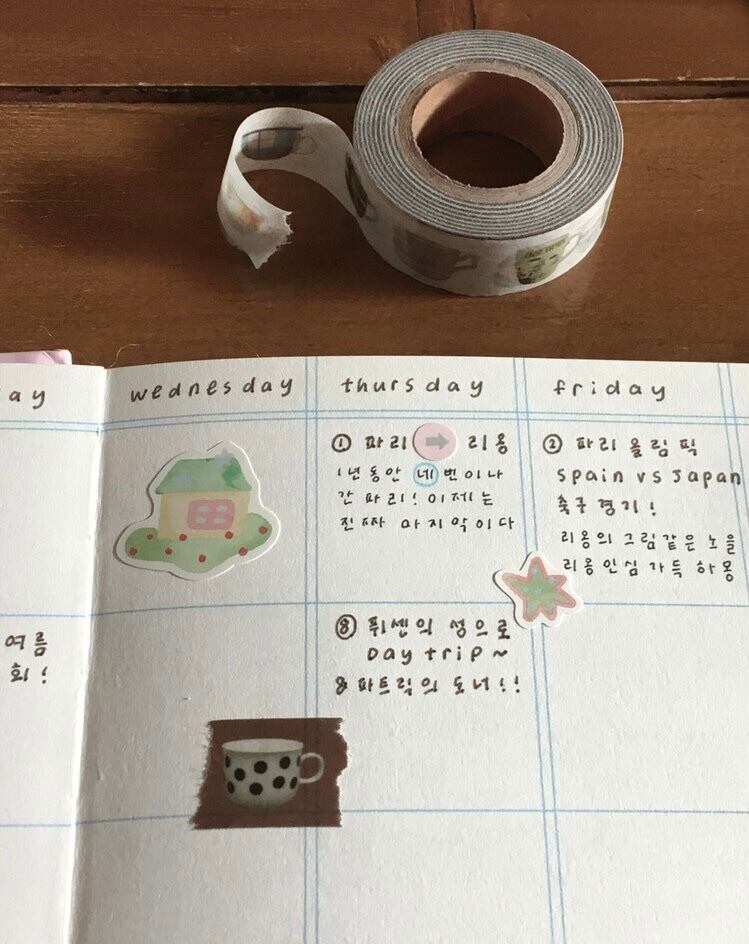 ay
wednesday
thursday
friday
① 파리 → 리옹
1년동안 네번이나
간 파리! 이제는
진짜 마지막이다
② 파리올림픽
spain vs Japan
축구 경기!
리옹의 그림같은 노을
리옹인심 가득 하몽
여름
회!
⑧ 퓌센의 성으로
Day trip~
& 파트릭의 도너!!